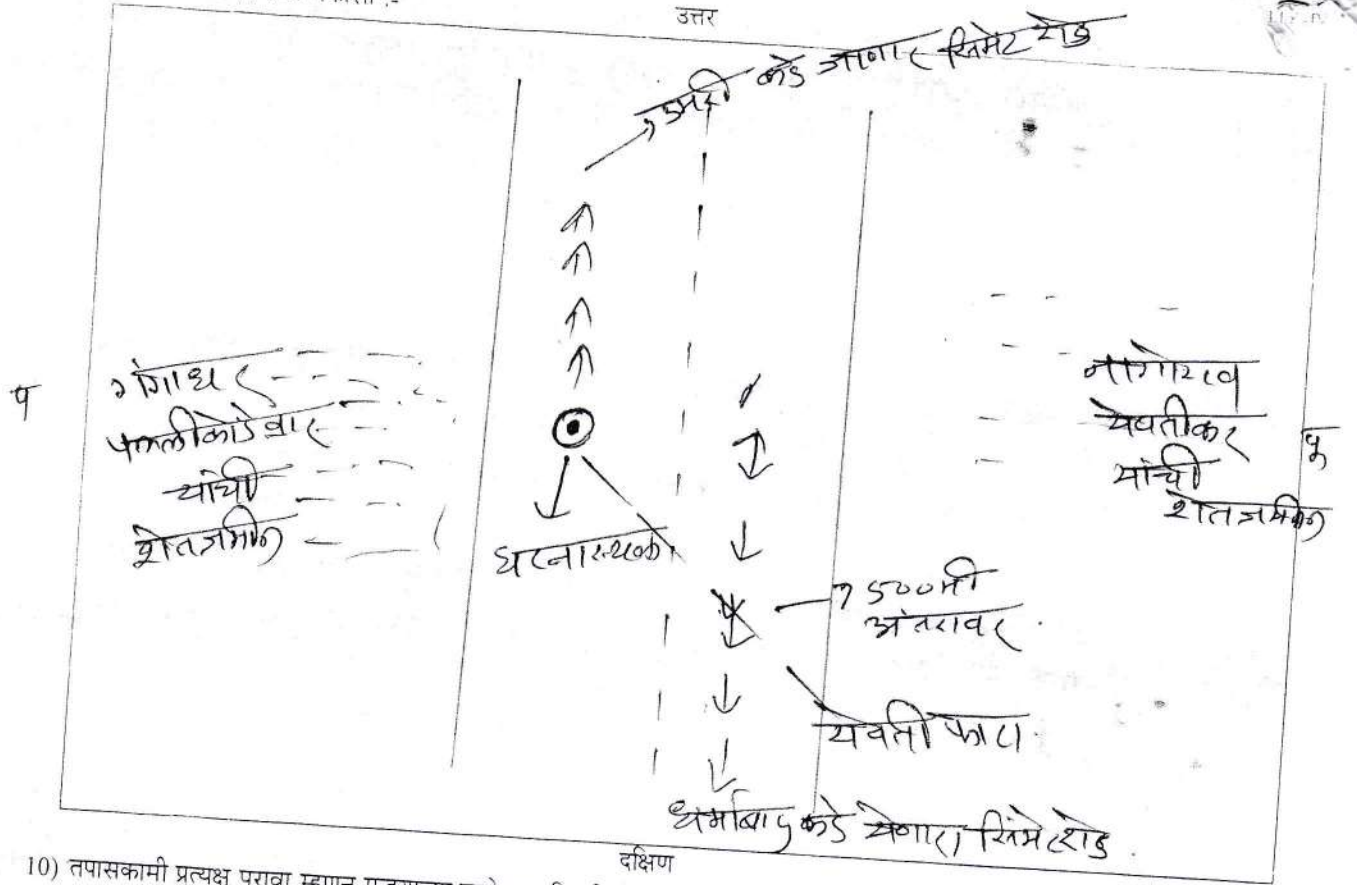 उत्तर
उमरी कडे जाणार सिमेट रोड
प
गंगाधर
पल्लीकोंडेवार
यांची
शेतजमीन
घटनास्थळ
नागोराव
येवतीकर
यांची
शेतजमीन
पू
500मी
अंतरावर
येवती फाटा
धर्माबाद कडे येणारा सिमेट रोड
दक्षिण
10) तपासकामी प्रत्यक्ष पुरावा म्हणून